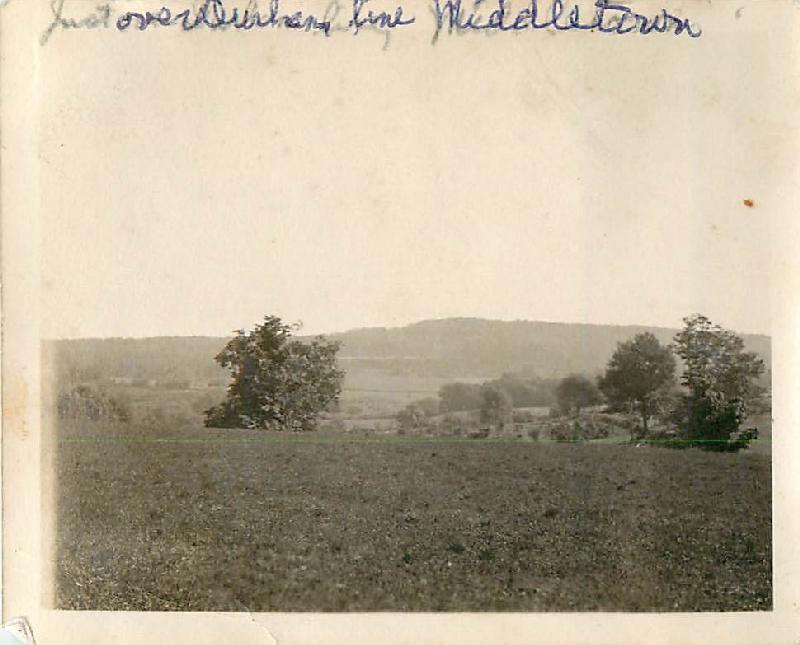 Just over Durham line Middletown